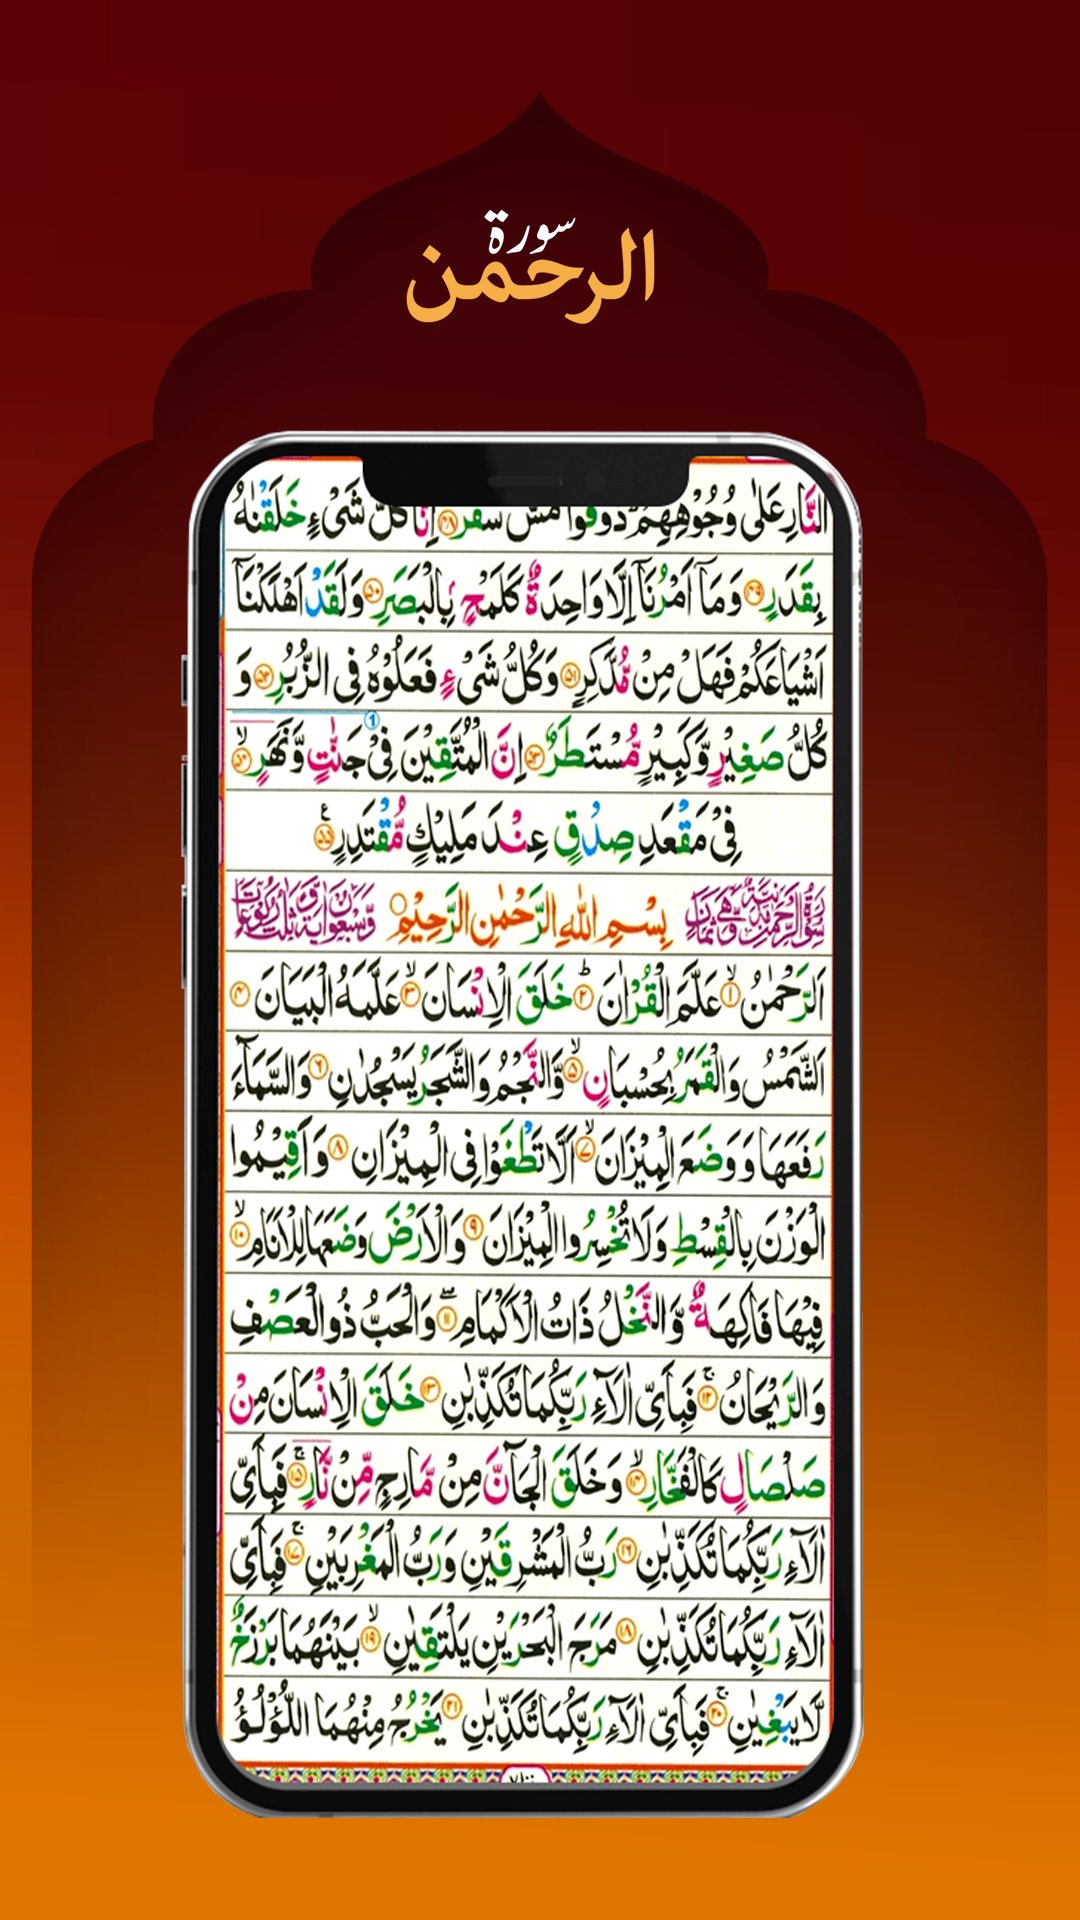 سورة
الرحمن
النَّارِ عَلٰى وُجُوْهِهِمْ ذُوْقُوْا مَسَّ سَقَرَ ﴿٤٨﴾ اِنَّا كُلَّ شَىْءٍ خَلَقْنٰهُ
بِقَدَرٍ ﴿٤٩﴾ وَمَآ اَمْرُنَآ اِلَّا وَاحِدَةٌ كَلَمْحٍۭ بِالْبَصَرِ ﴿٥٠﴾ وَلَقَدْ اَهْلَكْنَآ
اَشْيَاعَكُمْ فَهَلْ مِنْ مُّدَّكِرٍ ﴿٥١﴾ وَكُلُّ شَىْءٍ فَعَلُوْهُ فِى الزُّبُرِ ﴿٥٢﴾ وَ
كُلُّ صَغِيْرٍ وَّكَبِيْرٍ مُّسْتَطَرٌ ﴿٥٣﴾ اِنَّ الْمُتَّقِيْنَ فِىْ جَنّٰتٍ وَّنَهَرٍ ﴿٥٤﴾
فِىْ مَقْعَدِ صِدْقٍ عِنْدَ مَلِيْكٍ مُّقْتَدِرٍ ﴿٥٥﴾
بِسْمِ اللّٰهِ الرَّحْمٰنِ الرَّحِيْمِ
اَلرَّحْمٰنُ ﴿١﴾ عَلَّمَ الْقُرْاٰنَ ﴿٢﴾ خَلَقَ الْاِنْسَانَ ﴿٣﴾ عَلَّمَهُ الْبَيَانَ ﴿٤﴾
اَلشَّمْسُ وَالْقَمَرُ بِحُسْبَانٍ ﴿٥﴾ وَّالنَّجْمُ وَالشَّجَرُ يَسْجُدٰنِ ﴿٦﴾ وَالسَّمَآءَ
رَفَعَهَا وَوَضَعَ الْمِيْزَانَ ﴿٧﴾ اَلَّا تَطْغَوْا فِى الْمِيْزَانِ ﴿٨﴾ وَاَقِيْمُوا
الْوَزْنَ بِالْقِسْطِ وَلَا تُخْسِرُوا الْمِيْزَانَ ﴿٩﴾ وَالْاَرْضَ وَضَعَهَا لِلْاَنَامِ ﴿١٠﴾
فِيْهَا فَاكِهَةٌ وَّالنَّخْلُ ذَاتُ الْاَكْمَامِ ﴿١١﴾ وَالْحَبُّ ذُو الْعَصْفِ
وَالرَّيْحَانُ ﴿١٢﴾ فَبِاَىِّ اٰلَآءِ رَبِّكُمَا تُكَذِّبٰنِ ﴿١٣﴾ خَلَقَ الْاِنْسَانَ مِنْ
صَلْصَالٍ كَالْفَخَّارِ ﴿١٤﴾ وَخَلَقَ الْجَآنَّ مِنْ مَّارِجٍ مِّنْ نَّارٍ ﴿١٥﴾ فَبِاَىِّ
اٰلَآءِ رَبِّكُمَا تُكَذِّبٰنِ ﴿١٦﴾ رَبُّ الْمَشْرِقَيْنِ وَرَبُّ الْمَغْرِبَيْنِ ﴿١٧﴾ فَبِاَىِّ
اٰلَآءِ رَبِّكُمَا تُكَذِّبٰنِ ﴿١٨﴾ مَرَجَ الْبَحْرَيْنِ يَلْتَقِيٰنِ ﴿١٩﴾ بَيْنَهُمَا بَرْزَخٌ
لَّا يَبْغِيٰنِ ﴿٢٠﴾ فَبِاَىِّ اٰلَآءِ رَبِّكُمَا تُكَذِّبٰنِ ﴿٢١﴾ يَخْرُجُ مِنْهُمَا اللُّؤْلُؤُ